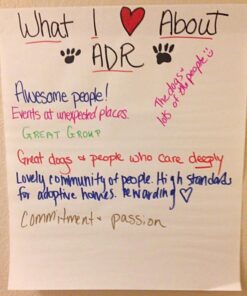 What I ❤ About
ADR
Awesome people!
The dogs +
lots of the people
Events at unexpected places.
GREAT GROUP
Great dogs + people who care deeply
Lovely community of people. High standards
for adoptive homes. Rewarding ♡
Commitment + passion